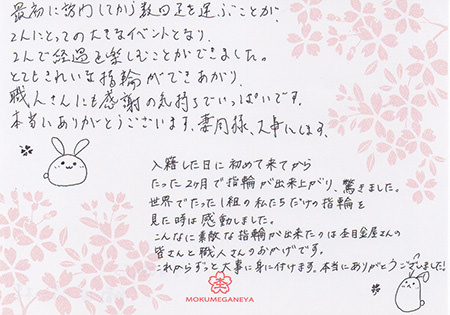 最初に訪問してから数回足を運ぶことが、
2人にとっての大きなイベントとなり、
2人で経過を楽しむことができました。
とてもきれいな指輪ができあがり、
職人さんにも感謝の気持ちでいっぱいです。
本当にありがとうございます。妻同様、大事にします。
入籍した日に初めて来てから
たった2ヶ月で指輪が出来上がり、驚きました。
世界でたった1組の私たちだけの指輪を
見た時は感動しました。
こんなに素敵な指輪が出来たのは杢目金屋さんの
皆さんと職人さんのおかげです。
これからずっと大事に身に付けます。本当にありがとうございました!
MOKUMEGANEYA